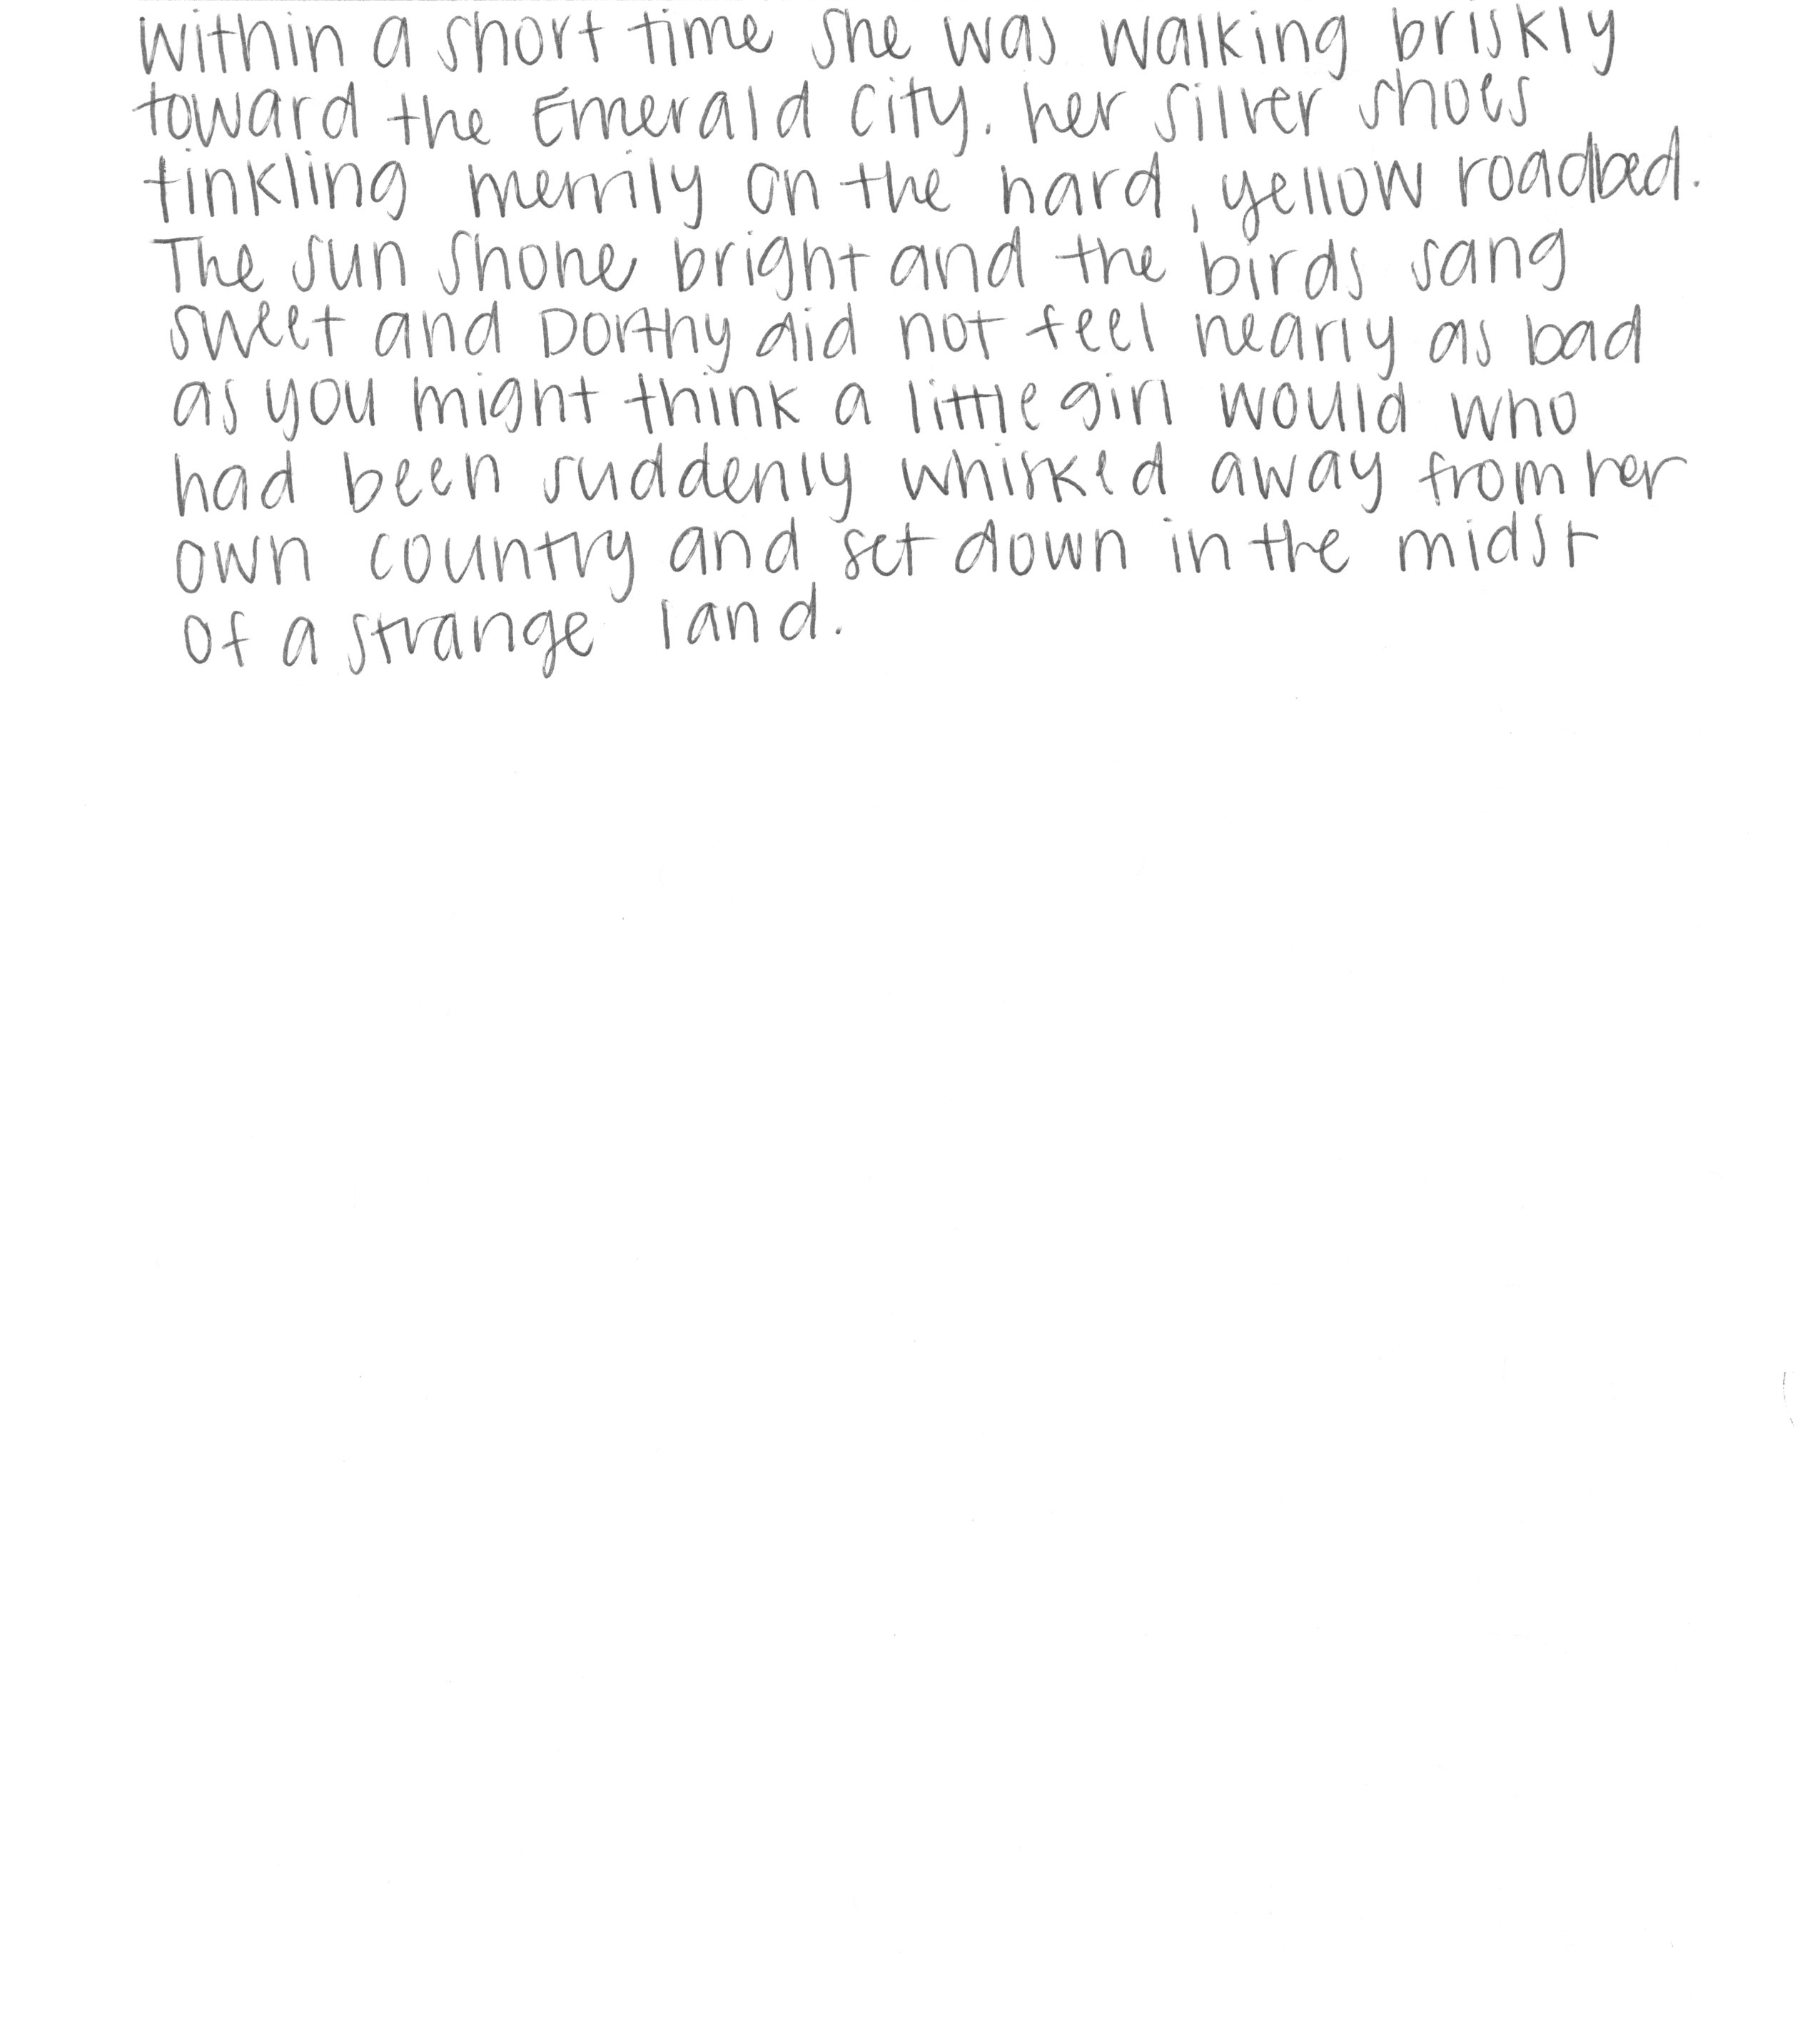 Within a short time she was walking briskly
toward the Emerald City. her silver shoes
tinkling merrily on the hard, yellow roadbed.
The sun shone bright and the birds sang
sweet and Dorthy did not feel nearly as bad
as you might think a little girl would who
had been suddenly whisked away from her
own country and set down in the midst
of a strange land.